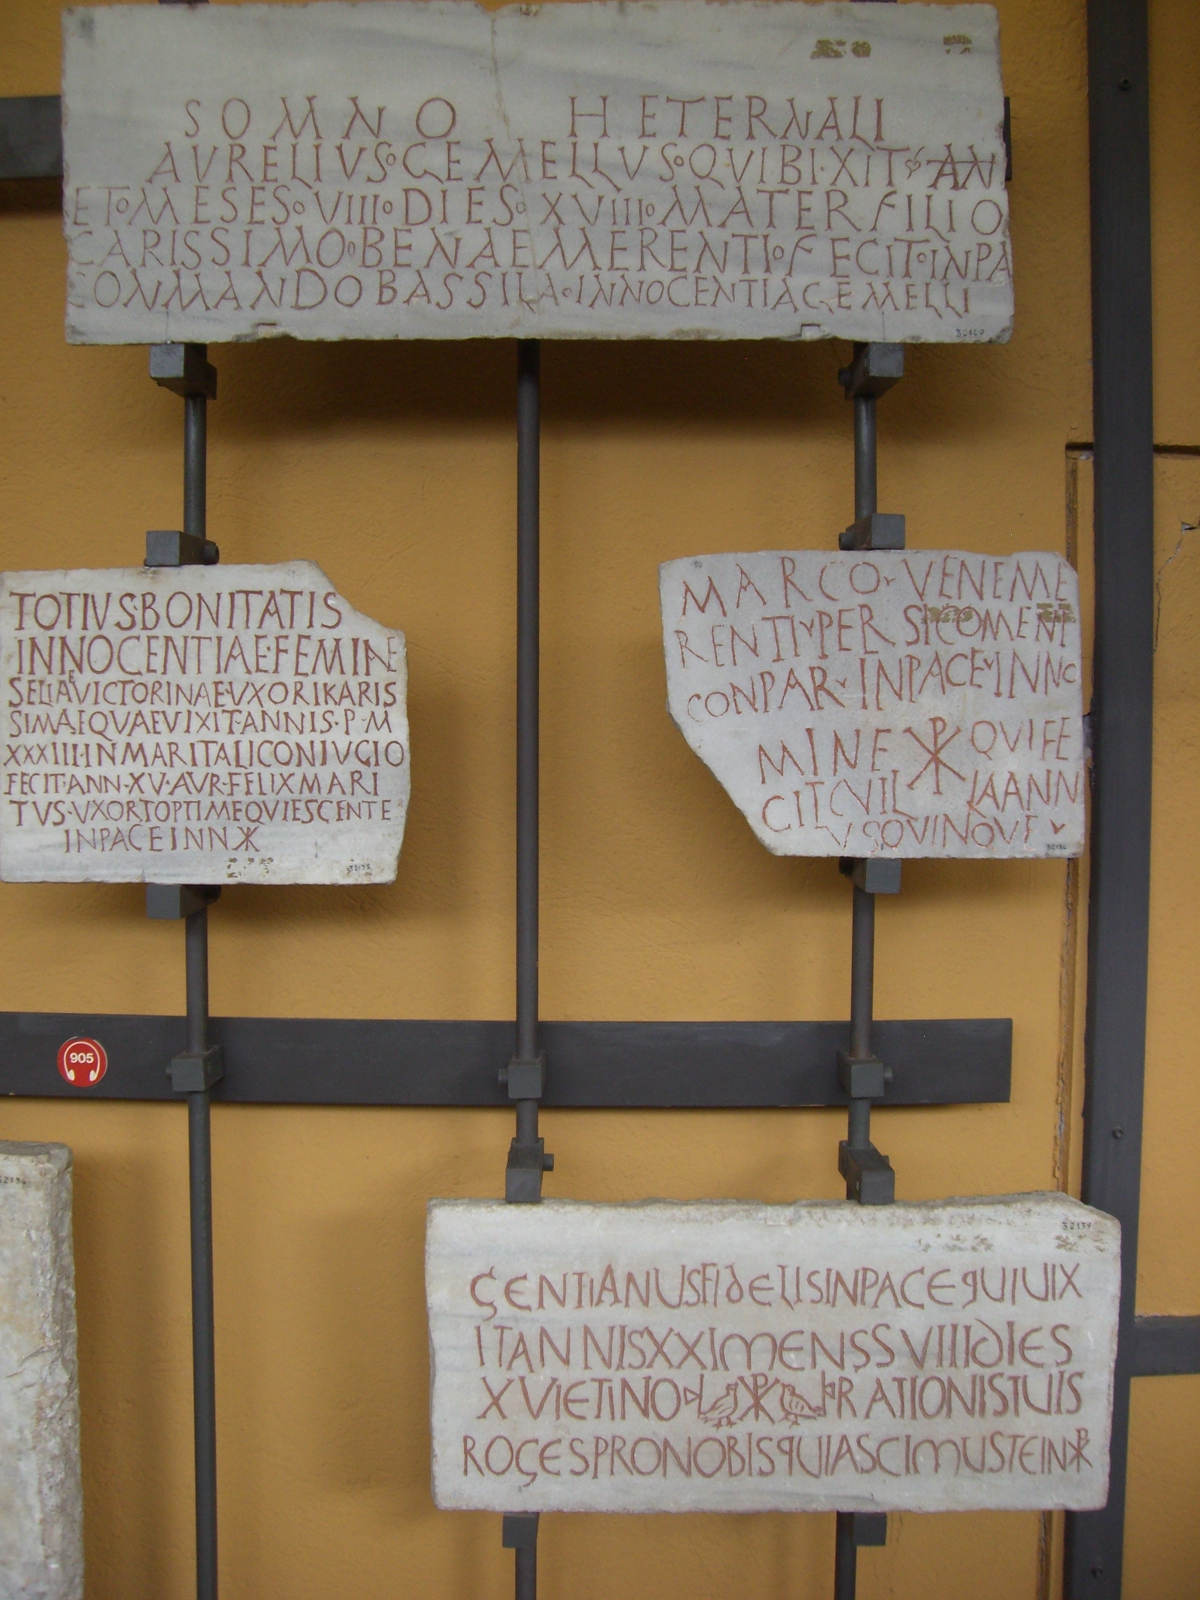 SOMNO HETERNALI
AVRELIVS GEMELLVS QVI BIXIT AN
ET MESES VIII DIES XVIII MATER FILIO
CARISSIMO BENAEMERENTI FECIT IN PA
CONMANDO BASSILA INNOCENTIA GEMELLI
32409
TOTIVS BONITATIS
INNOCENTIAE FEMINE
SELIAE VICTORINAE VXORI KARIS
SIMAE QVAE VIXIT ANNIS P M
XXXIII IN MARITALI CONIVGIO
FECIT ANN XV AVR FELIX MARI
TVS VXORI OPTIME QVIESCENTE
IN PACE IN N ☧
32135
MARCO VENEME
RENTI PER SICOMENE
CONPAR IN PACE IN NO
MINE ☧ QVI FE
CIT CVIL IA ANN
VSQVINQVE
905
GENTIANUS FIDELIS IN PACE QUI UIX
IT ANNIS XXI MENSS VIII DIES
XVI ET IN O ☧ RATIONIS TUIS
ROGES PRO NOBIS QUIA SCIMUS TE IN ☧